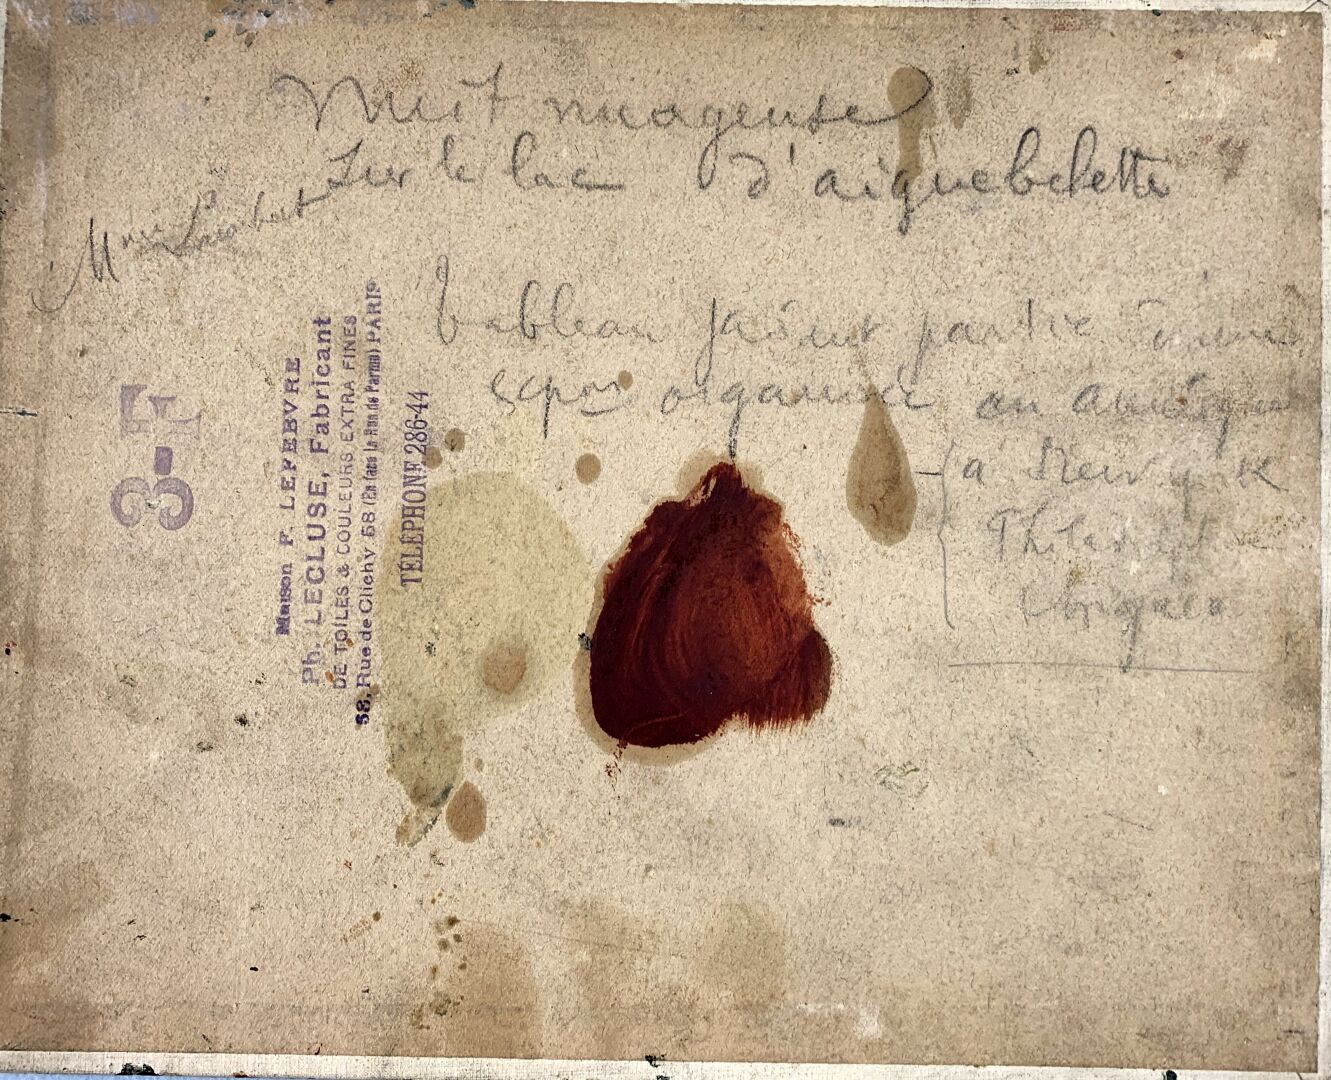 Nuit nuageuse
sur le lac d'aiguebelette
Mme
Tableau faisant partie d'une
expon organisée en amérique
à New york
Philadelphie
Chigago
3-F
Maison F. LEFEBVRE
Ph. LECLUSE, Fabricant
DE TOILES & COULEURS EXTRA FINES
68, Rue de Clichy 68 (En face la Rue de Parme) PARIS
TÉLÉPHONE 286-44